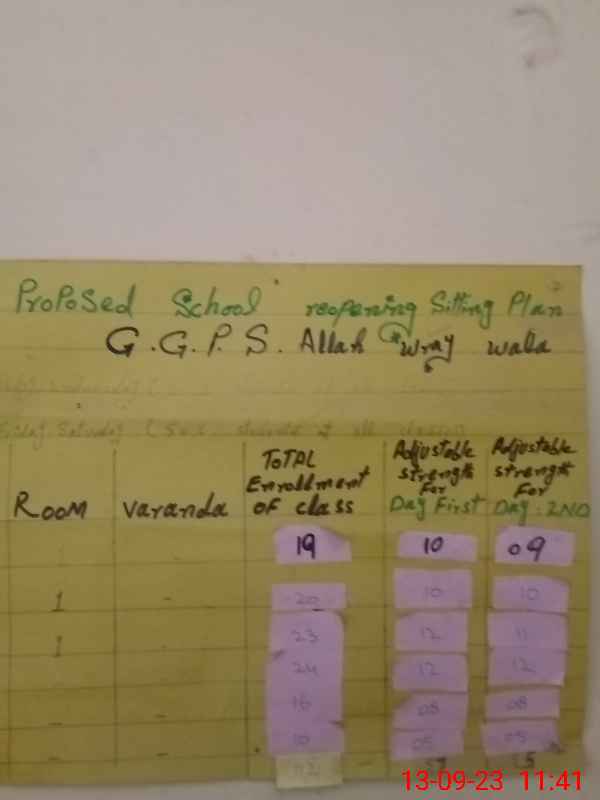 Proposed School reopening Sitting Plan
G.G.P.S. Allah wray wala
ROOM Varanda TOTAL Enrollment OF class Adjustable strength For Day First Adjustable strength For Day 2ND
19 10 09
1 - 20 10 10
1 - 23 12 11
24 12 12
- - 16 08 08
- - 10 05 05
13-09-23 11:41